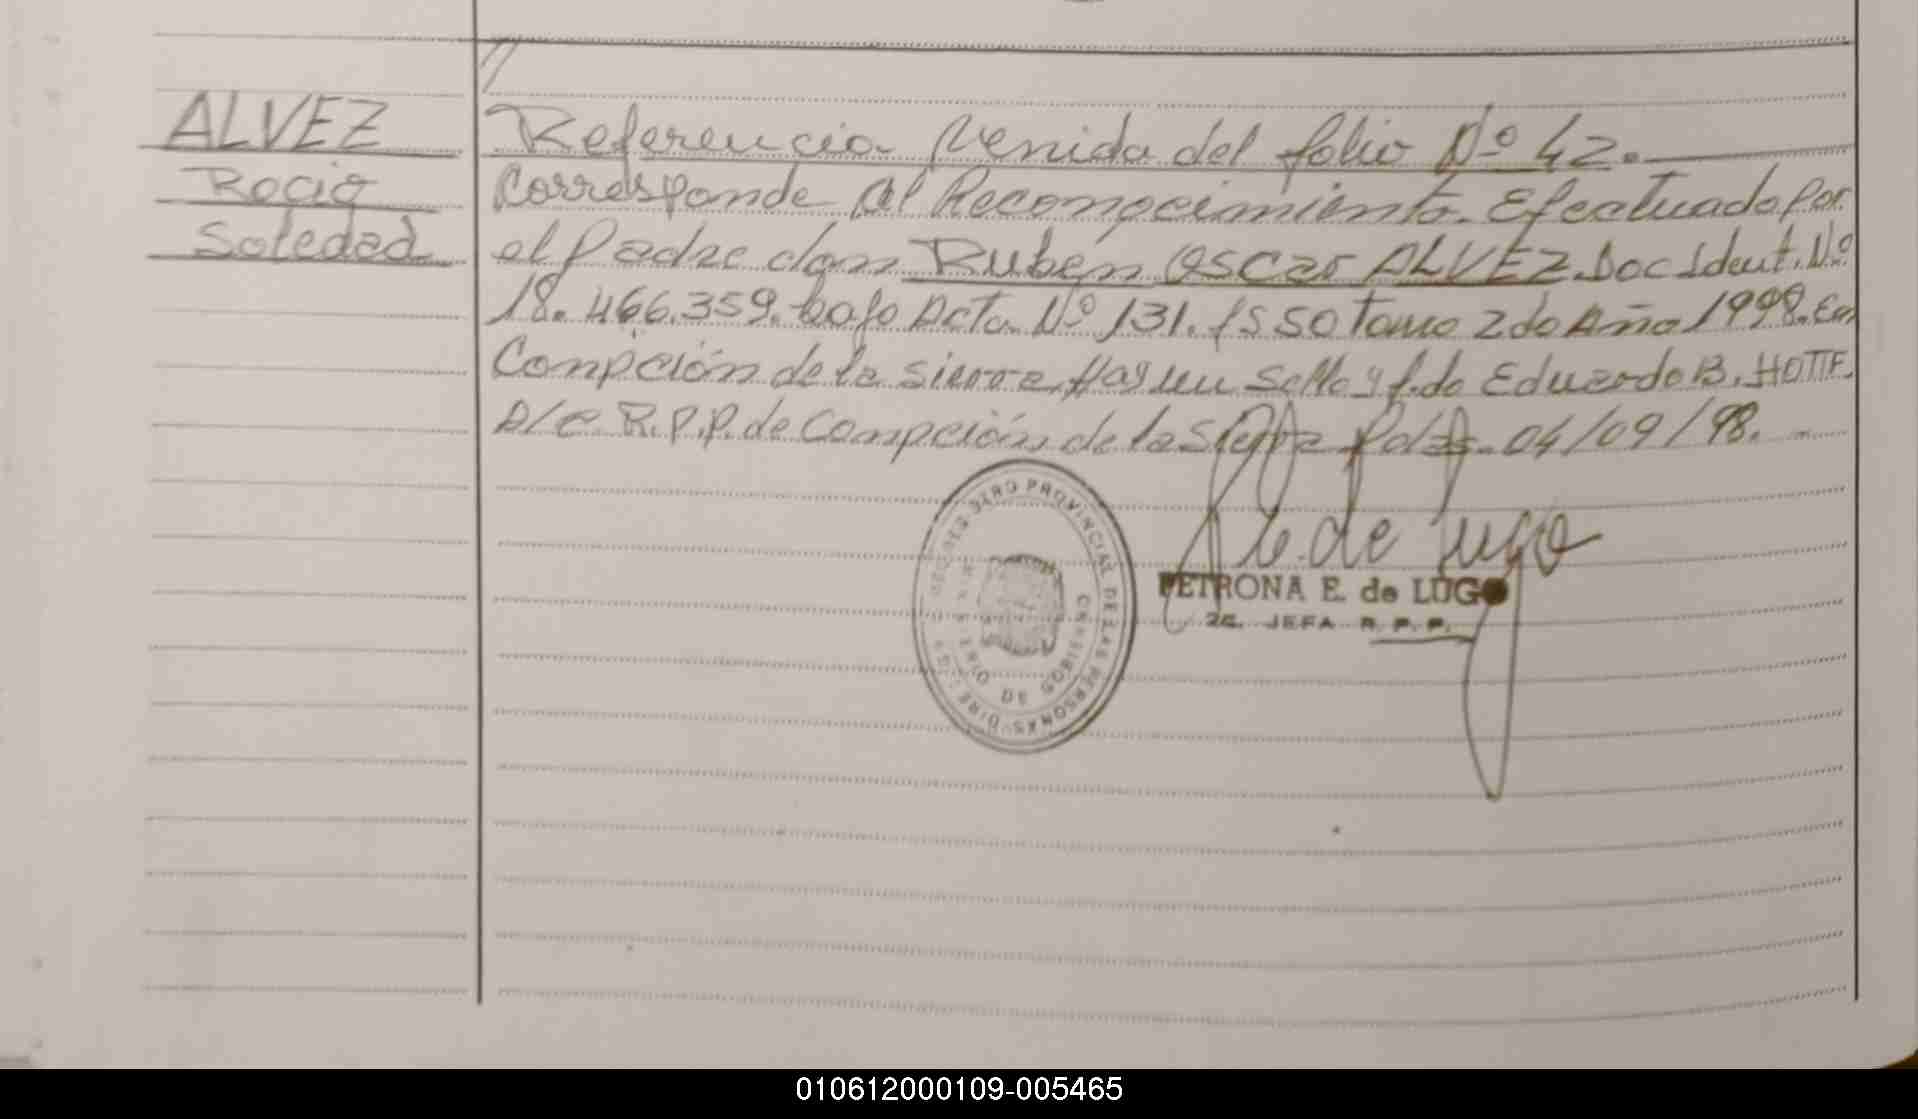 ALVEZ
Rocio
Soledad
Referencia Venida del folio Nº 42.
Corresponde al Reconocimiento Efectuado por
el Padre don Rubén Oscar ALVEZ. Doc Ident. Nº
18.466.359. bajo Acta Nº 131. fs 50 Tomo 2do Año 1998. En
Conpción de la Sierra Hay un Sello y f.do Eduardo B. HOTTF.
A/C R.P.P. de Conpción de la Sierra Pdas. 04/09/98.
E. de Lugo
PETRONA E. de LUGO
JEFA R. P. P.
REGISTRO PROVINCIAL DE LAS PERSONAS
MINISTERIO DE GOBIERNO
010612000109-005465